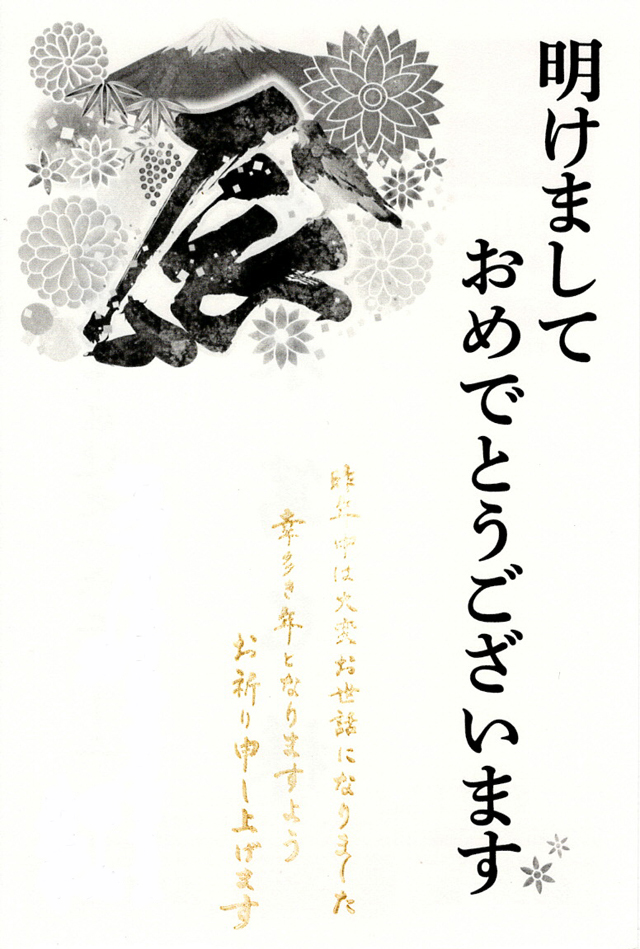 明けまして
おめでとうございます
昨年中は大変お世話になりました
幸多き年となりますよう
お祈り申し上げます